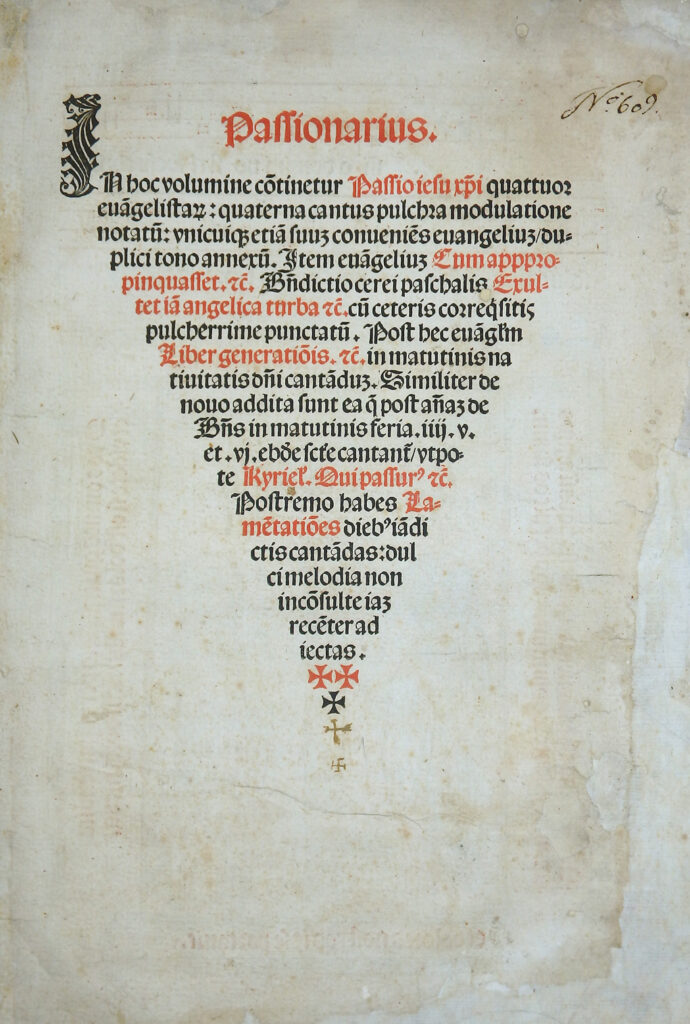 Passionarius.
Nº 609.
IN hoc volumine cõtinetur Passio iesu xp̃i quattuor
euãgelistaꝝ: quaterna cantus pulchra modulatione
notatũ: vnicuiqꝫ etiã suuꝫ conueniẽs euangeliuꝫ/du-
plici tono annexũ. Item euãgeliuꝫ Cum apppro-
pinquasset. ⁊c̃. Bñdictio cerei paschalis Exul-
tet iã angelica turba ⁊c̃. cũ ceteris correq̃sitis
pulcherrime punctatũ. Post hec euãgl̃m
Liber generatiõis. ⁊c̃. in matutinis na
tiuitatis dñi cantãduꝫ. Similiter de
nouo addita sunt ea q̃ post añaꝫ de
Bñs in matutinis feria. iiij. v.
et. vj. ebd̃e sct̃e cantant̃/vtpo-
te Kyriel̃. Qui passurꝰ ⁊c̃.
Postremo habes La-
mẽtatiões diebꝰ iã di
ctis cantãdas: dul
ci melodia non
incõsulte iaꝫ
recẽter ad
iectas.